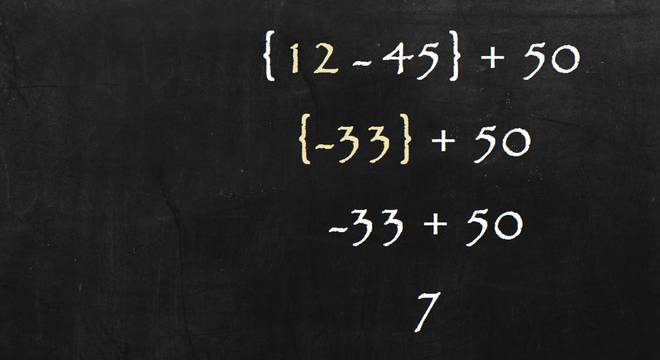 {12-45} + 50
{-33} + 50
-33 + 50
7